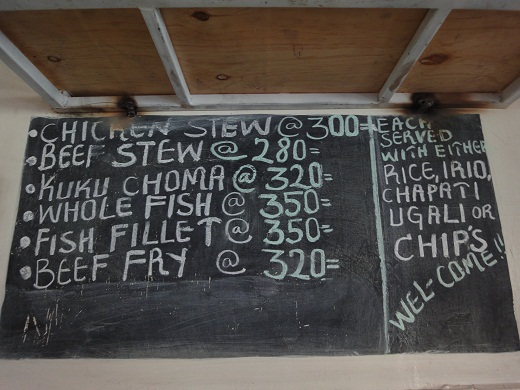 CHICKEN STEW @ 300=
BEEF STEW @ 280=
KUKU CHOMA @ 320=
WHOLE FISH @ 350=
FISH FILLET @ 350=
BEEF FRY @ 320=
EACH
SERVED
WITH EITHER
RICE, IRIO,
CHAPATI
UGALI OR
CHIP'S
WEL-COME!!